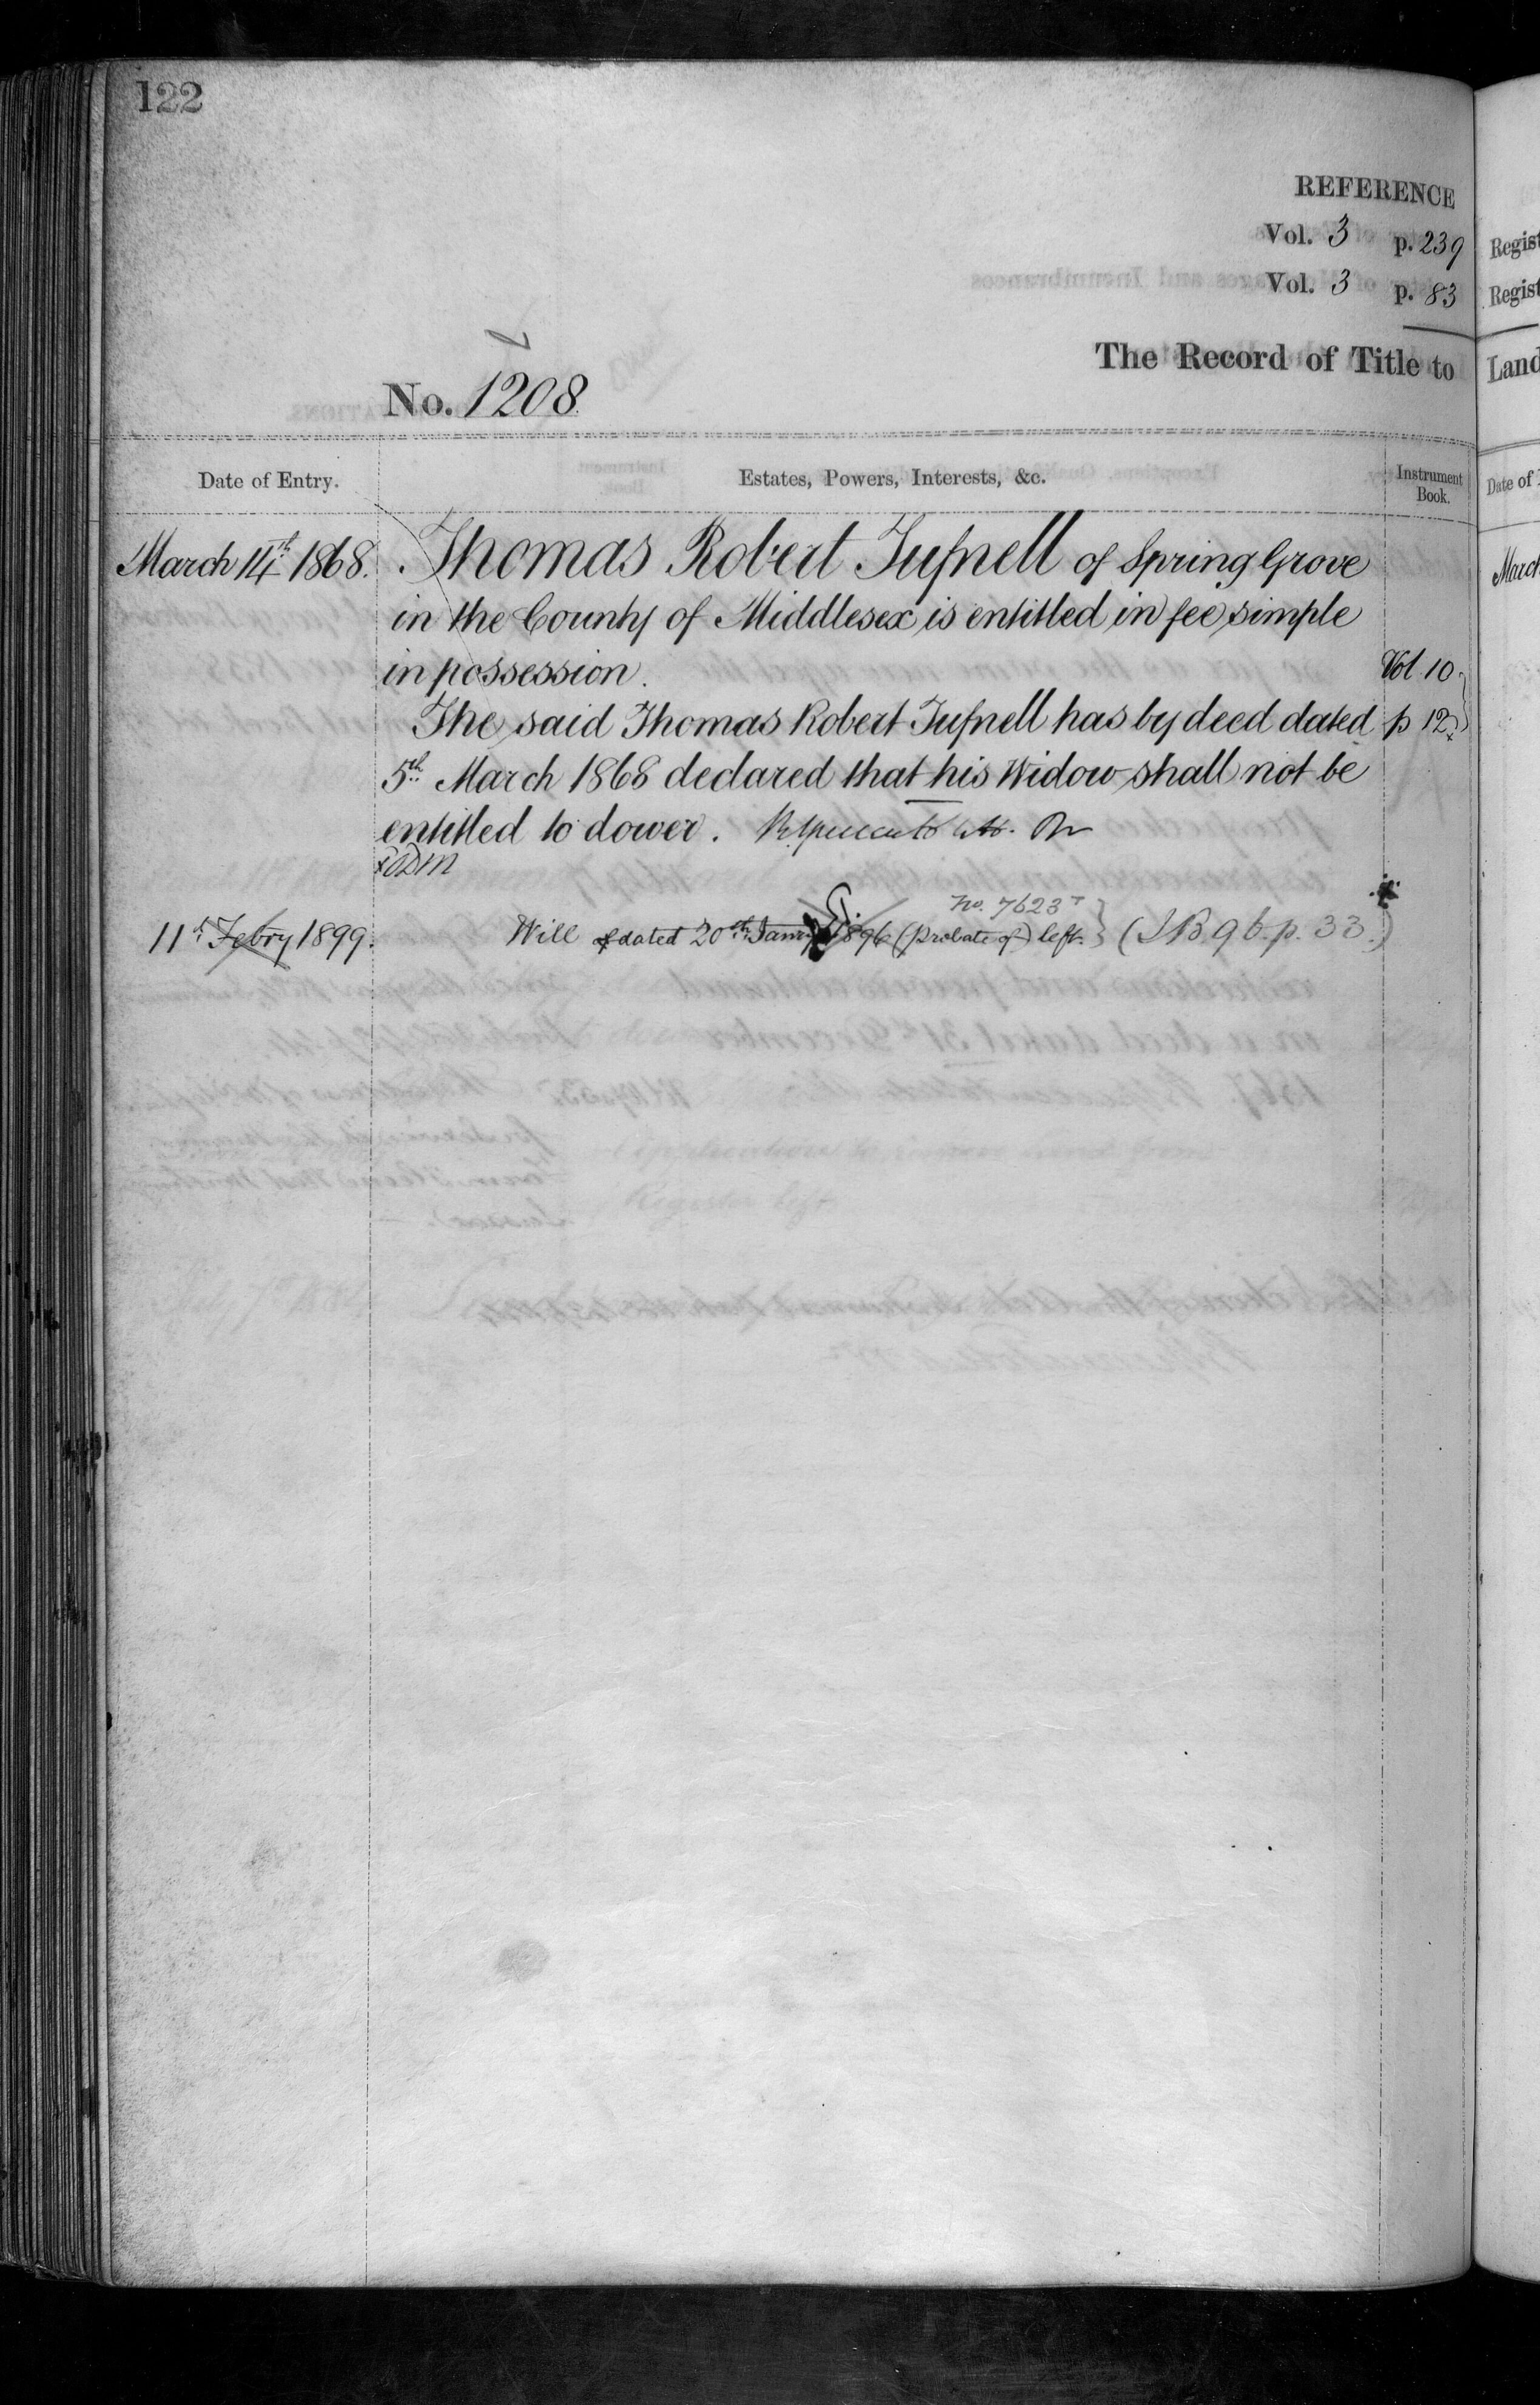 122
REFERENCE
Vol. 3 p. 239
Vol. 3 p. 83
The Record of Title to
No. 1208
Date of Entry. Estates, Powers, Interests, &c. Instrument Book.
March 14th 1868. Thomas Robert Tufnell of Spring Grove
in the County of Middlesex is entitled in fee simple
in possession. Vol 10
The said Thomas Robert Tufnell has by deed dated p 12
5th March 1868 declared that his Widow shall not be
entitled to dower.
No. 7623
11th Febry 1899. Will dated 20th Jany 1896 (Probate of) left. (I B 96. p. 33.)
Regist
Regist
Land
Date of
March